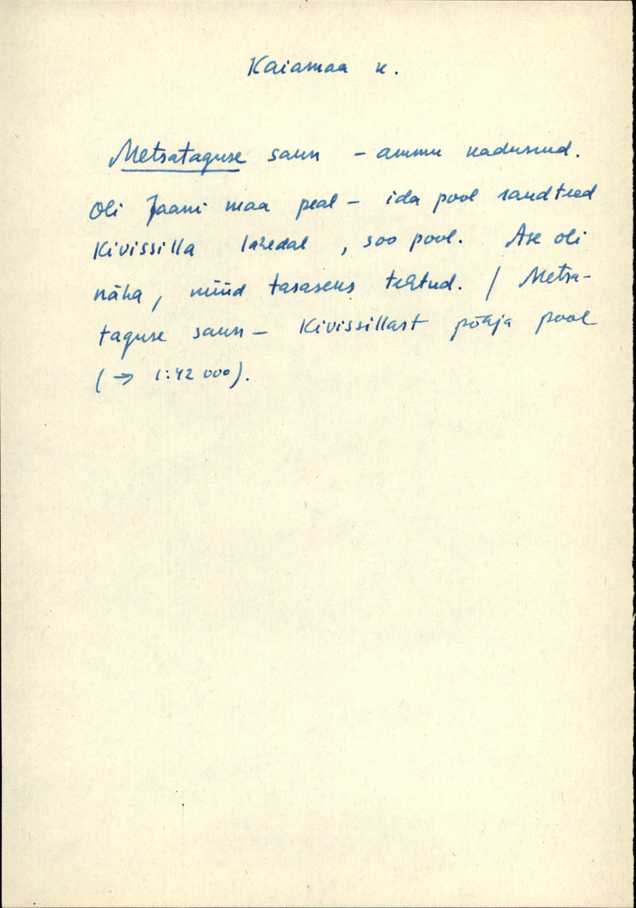 Kaiamaa k.
Metsataguse saun – ammu kadunud.
Oli Jaani maa peal – ida pool raudteed
Kivissilla lähedal, soo pool. Ase oli
näha, nüüd tasaseks tehtud. / Metsa-
taguse saun – Kivissillast põhja pool
(→ 1:42 000).